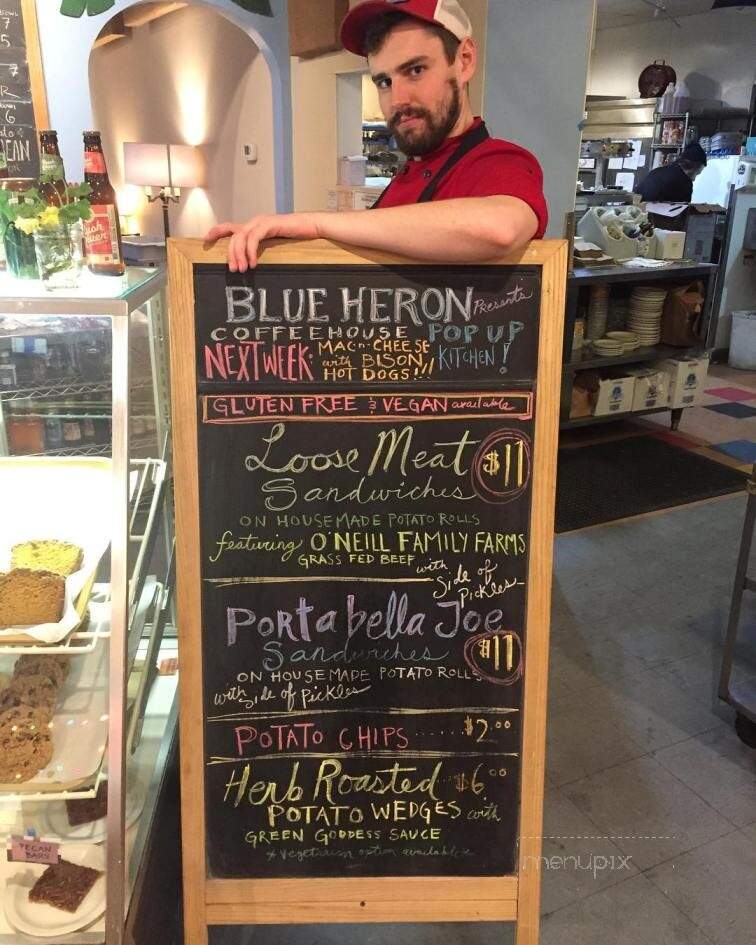 BLUE HERON Presents
COFFEEHOUSE POP UP
NEXT WEEK: MAC n' CHEESE KITCHEN!
with BISON
HOT DOGS!!!
GLUTEN FREE & VEGAN available
Loose Meat $11
Sandwiches
ON HOUSEMADE POTATO ROLLS
featuring O'NEILL FAMILY FARMS
GRASS FED BEEF with
Side of
Pickles
Portabella Joe
Sandwiches $11
ON HOUSEMADE POTATO ROLLS
with side of Pickles
POTATO CHIPS ...... $2.00
Herb Roasted $6.00
POTATO WEDGES with
GREEN GODDESS SAUCE
* vegetarian option available
PECAN
BARS
menupix